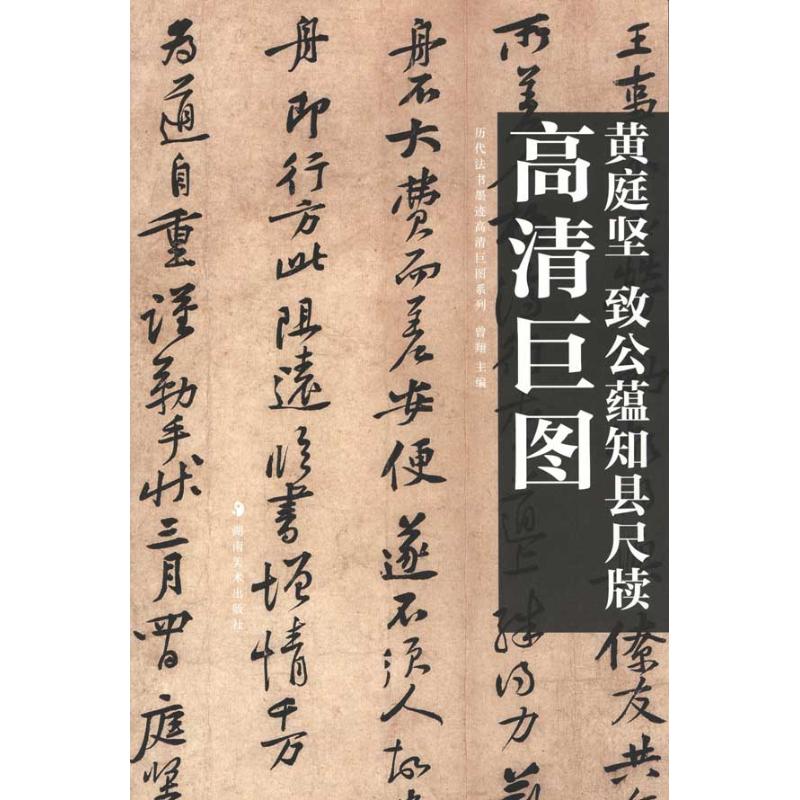 黄庭坚 致公蕴知县尺牍
高清巨图
历代法书墨迹高清巨图系列 曾翔 主编
湖南美术出版社
王事
僚友共
所差
得力
舟不大費而差安便遂不須人故
舟即行方此阻遠臨書增情千万
為道自重謹勒手状三月四日庭堅